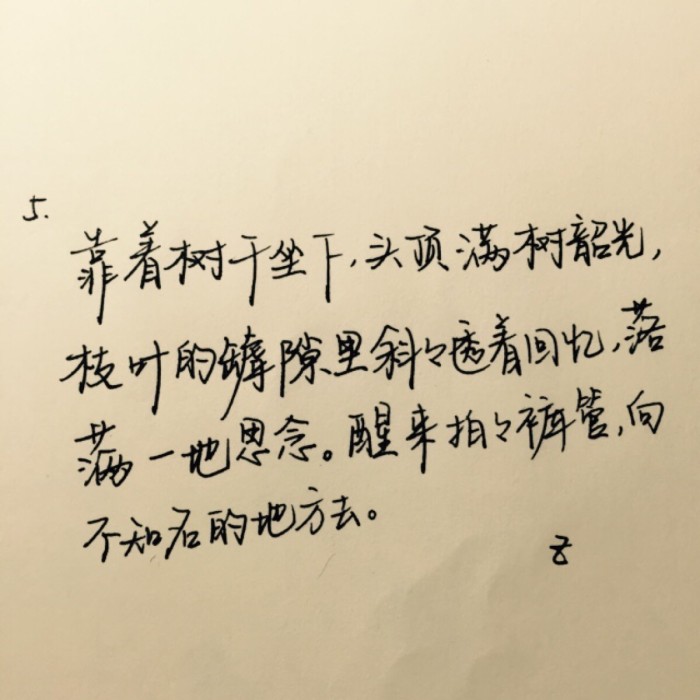 5.
靠着树干坐下，头顶满树韶光，
枝叶的罅隙里斜々透着回忆，落
满一地思念。醒来拍々裤管，向
不知名的地方去。
z